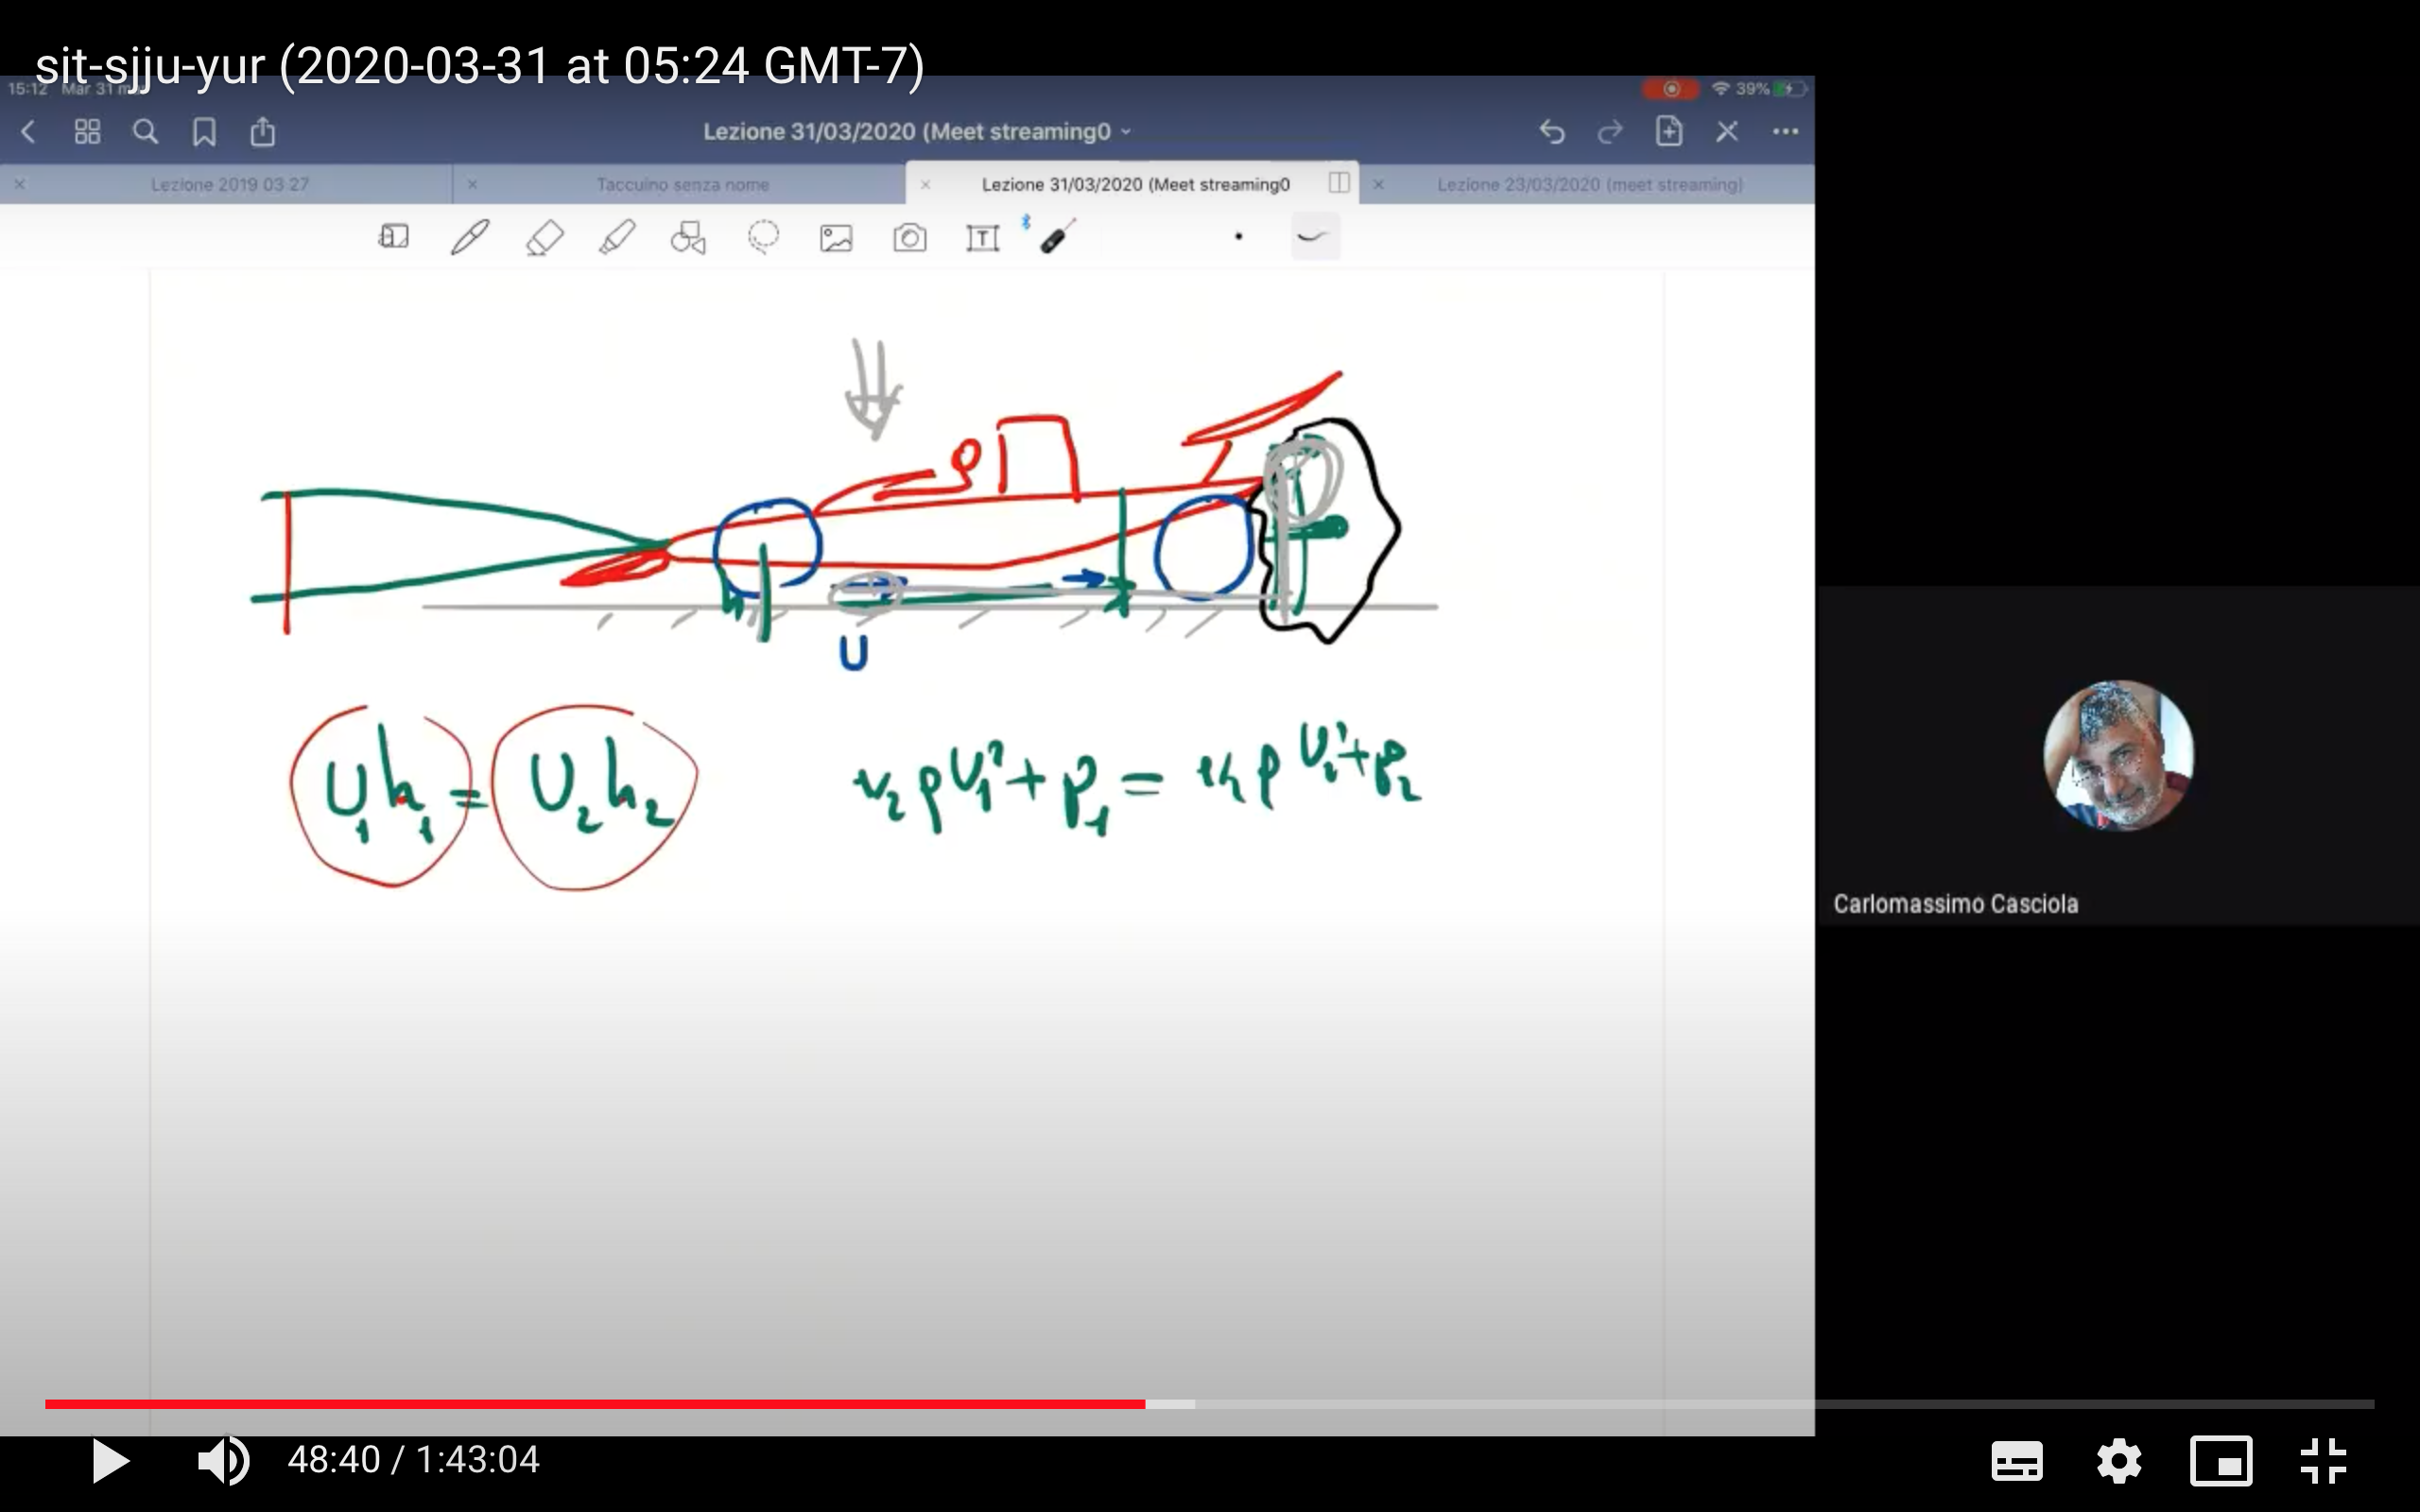 sit-sjju-yur (2020-03-31 at 05:24 GMT-7)
15:12 Mar 31 39%
Lezione 31/03/2020 (Meet streaming0
Lezione 2019 03 27 Taccuino senza nome Lezione 31/03/2020 (Meet streaming0 Lezione 23/03/2020 (meet streaming)
h
U
U₁h₁ = U₂h₂ ½ρU₁² + p₁ = ½ρU₂² + p₂
Carlomassimo Casciola
48:40 / 1:43:04